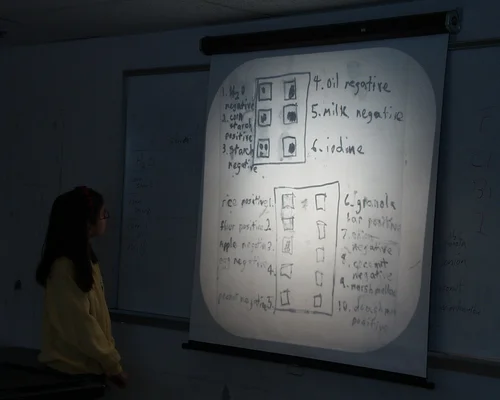 1. H2O
negative
2. corn
starch
positive
3. starch
negative
4. oil negative
5. milk negative
6. iodine
rice positive 1.
flour positive 2.
apple negative 3.
egg negative 4.
negative 5.
6. granola
bar positive
7.
negative
8. coconut
negative
9. marshmallow
10.
positive